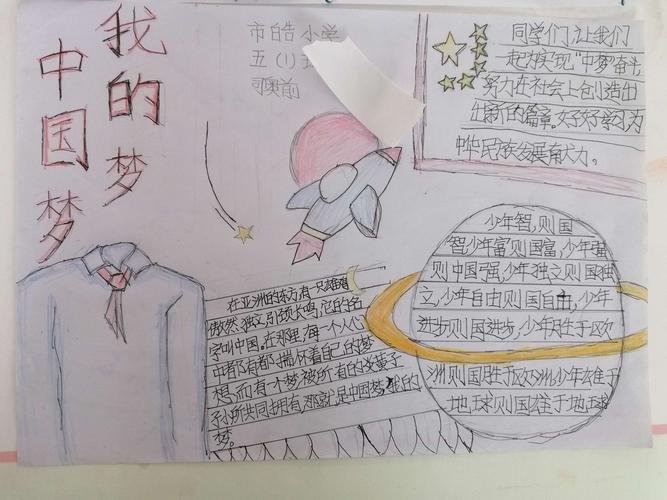 我的梦
中国梦
市皓小学
五(1)
同学们让我们
一起为实现"中梦奋斗
努力在社会上创造出
出新的篇章。好好学习为
中华民族发展有力。
少年智,则国
智少年富则国富,少年强
则中国强,少年独立则国独
立,少年自由则国自由,少年
进步则国进步,少年胜于欧
洲则国胜于欧洲,少年雄于
地球则国雄于地球
在亚洲的东方有一只雄鸡
傲然独立引颈长鸣,它的名
字叫中国。在那里,每一个人心
中都有都揣怀着自己的梦
想,而有一个梦被所有的炎黄子
孙所共同拥有,那就是中国梦,我的
梦。